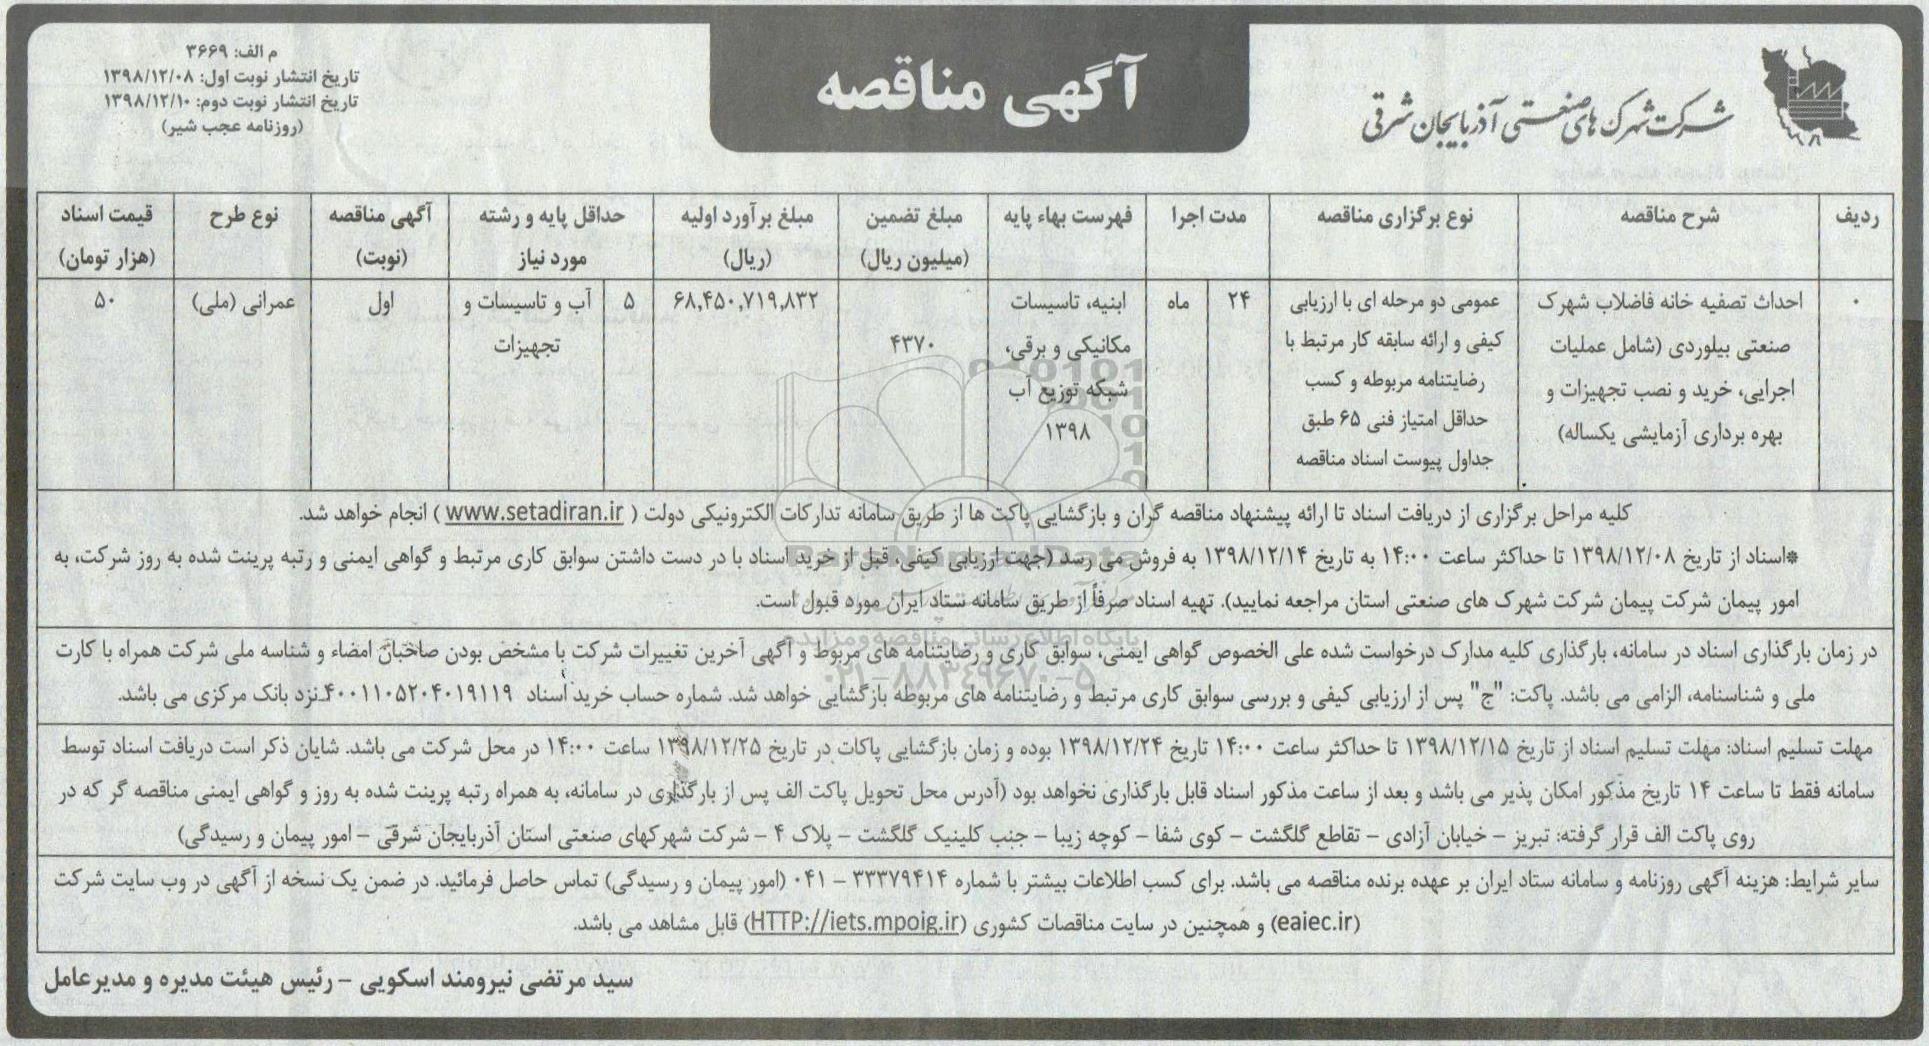 شرکت شهرک های صنعتی آذربایجان شرقی
آگهی مناقصه
م الف: ۳۶۶۹
تاریخ انتشار نوبت اول: ۱۳۹۸/۱۲/۰۸
تاریخ انتشار نوبت دوم: ۱۳۹۸/۱۲/۱۰
(روزنامه عجب شیر)
ردیف
شرح مناقصه
نوع برگزاری مناقصه
مدت اجرا
فهرست بهاء پایه
مبلغ تضمین
(میلیون ریال)
مبلغ برآورد اولیه
(ریال)
حداقل پایه و رشته
مورد نیاز
آگهی مناقصه
(نوبت)
نوع طرح
قیمت اسناد
(هزار تومان)
۰
احداث تصفیه خانه فاضلاب شهرک
صنعتی بیلوردی (شامل عملیات
اجرایی، خرید و نصب تجهیزات و
بهره برداری آزمایشی یکساله)
عمومی دو مرحله ای با ارزیابی
کیفی و ارائه سابقه کار مرتبط با
رضایتنامه مربوطه و کسب
حداقل امتیاز فنی ۶۵ طبق
جداول پیوست اسناد مناقصه
۲۴
ماه
ابنیه، تاسیسات
مکانیکی و برقی،
شبکه توزیع آب
۱۳۹۸
۴۳۷۰
۶۸,۴۵۰,۷۱۹,۸۳۲
۵
آب و تاسیسات و
تجهیزات
اول
عمرانی (ملی)
۵۰
کلیه مراحل برگزاری از دریافت اسناد تا ارائه پیشنهاد مناقصه گران و بازگشایی پاکت ها از طریق سامانه تدارکات الکترونیکی دولت ( www.setadiran.ir ) انجام خواهد شد.
*اسناد از تاریخ ۱۳۹۸/۱۲/۰۸ تا حداکثر ساعت ۱۴:۰۰ به تاریخ ۱۳۹۸/۱۲/۱۴ به فروش می رسد (جهت ارزیابی کیفی، قبل از خرید اسناد با در دست داشتن سوابق کاری مرتبط و گواهی ایمنی و رتبه پرینت شده به روز شرکت، به
امور پیمان شرکت پیمان شرکت شهرک های صنعتی استان مراجعه نمایید). تهیه اسناد صرفاً از طریق سامانه ستاد ایران مورد قبول است.
در زمان بارگذاری اسناد در سامانه، بارگذاری کلیه مدارک درخواست شده علی الخصوص گواهی ایمنی، سوابق کاری و رضایتنامه های مربوط و آگهی آخرین تغییرات شرکت با مشخص بودن صاحبان امضاء و شناسه ملی شرکت همراه با کارت
ملی و شناسنامه، الزامی می باشد. پاکت: "ج" پس از ارزیابی کیفی و بررسی سوابق کاری مرتبط و رضایتنامه های مربوطه بازگشایی خواهد شد. شماره حساب خرید اسناد ۴۰۰۱۱۰۵۲۰۴۰۱۹۱۱۹ نزد بانک مرکزی می باشد.
مهلت تسلیم اسناد: مهلت تسلیم اسناد از تاریخ ۱۳۹۸/۱۲/۱۵ تا حداکثر ساعت ۱۴:۰۰ تاریخ ۱۳۹۸/۱۲/۲۴ بوده و زمان بازگشایی پاکات در تاریخ ۱۳۹۸/۱۲/۲۵ ساعت ۱۴:۰۰ در محل شرکت می باشد. شایان ذکر است دریافت اسناد توسط
سامانه فقط تا ساعت ۱۴ تاریخ مذکور امکان پذیر می باشد و بعد از ساعت مذکور اسناد قابل بارگذاری نخواهد بود (آدرس محل تحویل پاکت الف پس از بارگذاری در سامانه، به همراه رتبه پرینت شده به روز و گواهی ایمنی مناقصه گر که در
روی پاکت الف قرار گرفته: تبریز – خیابان آزادی – تقاطع گلگشت – کوی شفا – کوچه زیبا – جنب کلینیک گلگشت – پلاک ۴ – شرکت شهرکهای صنعتی استان آذربایجان شرقی – امور پیمان و رسیدگی)
سایر شرایط: هزینه آگهی روزنامه و سامانه ستاد ایران بر عهده برنده مناقصه می باشد. برای کسب اطلاعات بیشتر با شماره ۳۳۳۷۹۴۱۴ – ۰۴۱ (امور پیمان و رسیدگی) تماس حاصل فرمائید. در ضمن یک نسخه از آگهی در وب سایت شرکت
(eaiec.ir) و همچنین در سایت مناقصات کشوری (HTTP://iets.mpoig.ir) قابل مشاهد می باشد.
سید مرتضی نیرومند اسکویی – رئیس هیئت مدیره و مدیرعامل
ParsNamadData
پایگاه اطلاع رسانی مناقصه و مزایده
۰۲۱–۸۸۳۴۹۶۷۰–۵